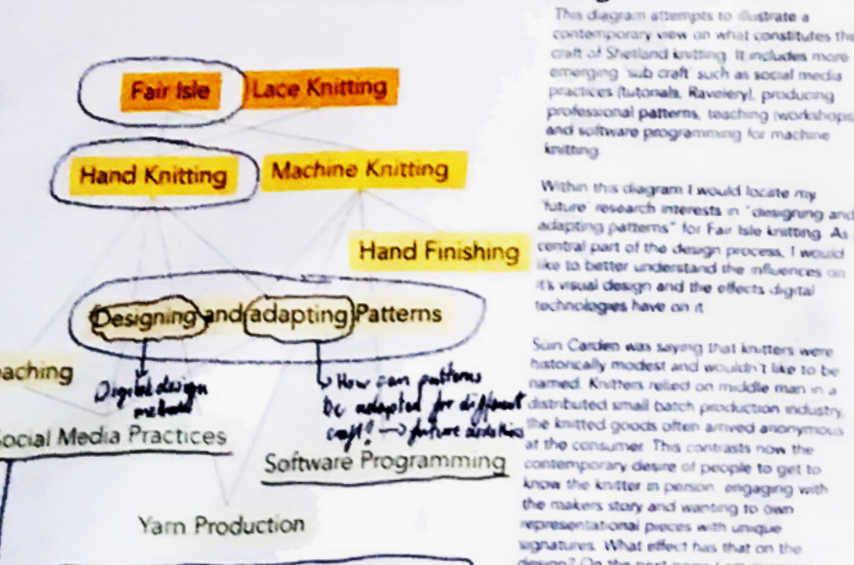 Fair Isle
Lace Knitting
Hand Knitting
Machine Knitting
Hand Finishing
Designing and adapting Patterns
aching
Digital design
How can patterns
be adapted for different
craft? → future
ocial Media Practices
Software Programming
Yarn Production
This diagram attempts to illustrate a
contemporary view on what constitutes the
craft of Shetland knitting. It includes more
emerging 'sub craft' such as social media
practices (tutorials, Ravelery), producing
professional patterns, teaching (workshops)
and software programming for machine
knitting.
Within this diagram I would locate my
'future' research interests in "designing and
adapting patterns" for Fair Isle knitting. As
central part of the design process, I would
like to better understand the influences on
it's visual design and the effects digital
technologies have on it
Suin Carden was saying that knitters were
historically modest and wouldn't like to be
named. Knitters relied on middle man in a
distributed small batch production industry,
the knitted goods often arrived anonymous
at the consumer. This contrasts now the
contemporary desire of people to get to
know the knitter in person, engaging with
the makers story and wanting to own
representational pieces with unique
signatures. What effect has that on the
design? On the next page I am